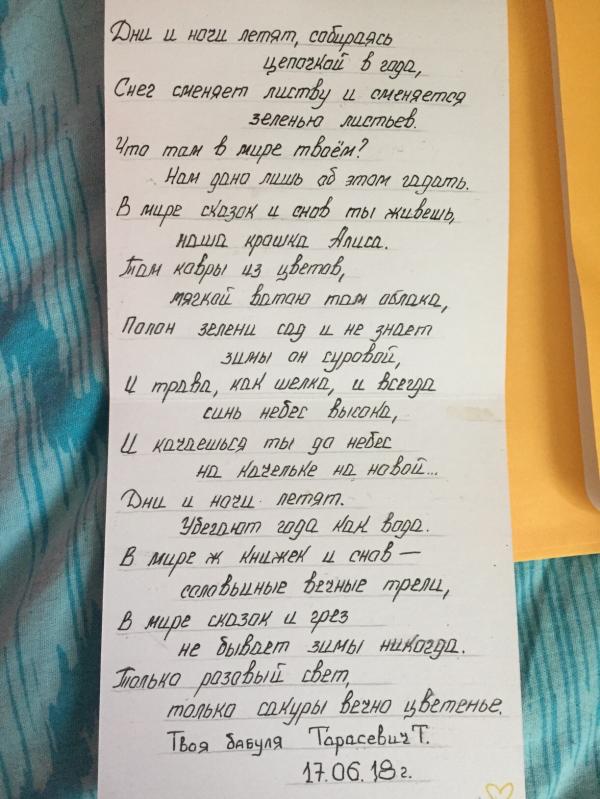 Дни и ночи летят, собираясь
цепочкой в года,
Снег сменяет листву и сменяется
зеленью листьев.
Что там в мире твоём?
Нам дано лишь об этом гадать.
В мире сказок и снов ты живешь,
наша крошка Алиса.
Там ковры из цветов,
мягкой ватою там облака,
Полон зелени сад и не знает
зимы он суровой,
И трава, как шелка, и всегда
синь небес высока,
И качаешься ты до небес
на качельке на новой...
Дни и ночи летят.
Убегают года как вода.
В мире ж книжек и снов —
соловьиные вечные трели,
В мире сказок и грез
не бывает зимы никогда.
Только розовый свет,
только сакуры вечно цветенье.
Твоя бабуля Тарасевич Т.
17.06.18 г.